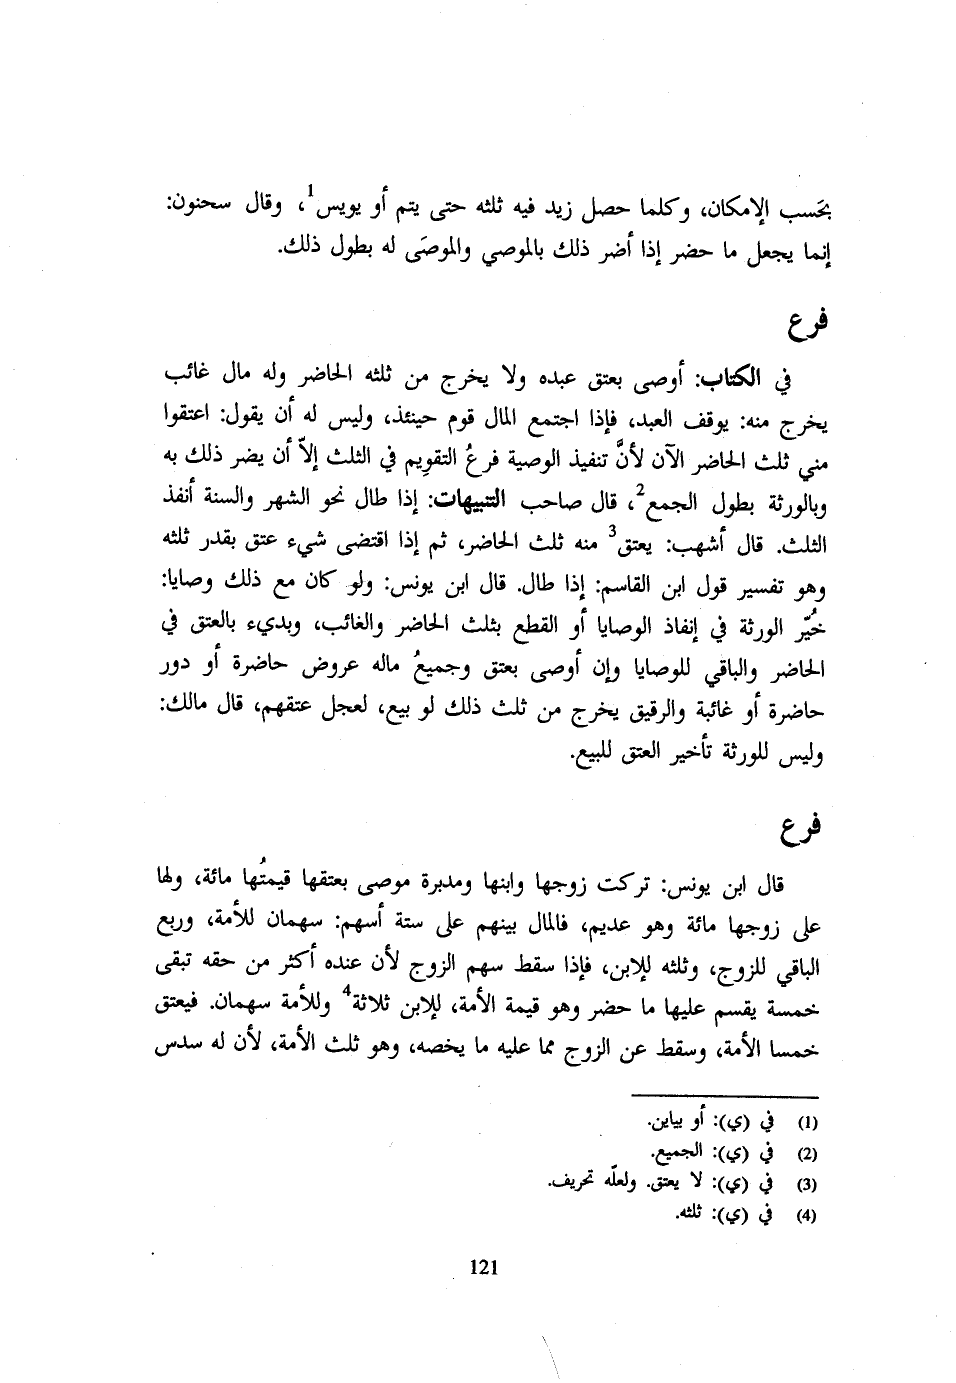 بحَسب الإمكان، وكلما حصل زيد فيه ثلثه حتى يتم أو يويس1، وقال سحنون:
إنما يجعل ما حضر إذا أضر ذلك بالموصي والموصَى له بطول ذلك.
فرع
في الكتاب: أوصى بعتق عبده ولا يخرج من ثلثه الحاضر وله مال غائب
يخرج منه: يوقف العبد، فإذا اجتمع المال قوم حينئذ، وليس له أن يقول: اعتقوا
مني ثلث الحاضر الآن لأنَّ تنفيذ الوصية فرعُ التقويم في الثلث إلاّ أن يضر ذلك به
وبالورثة بطول الجمع2، قال صاحب التنبيهات: إذا طال نحو الشهر والسنة أنفذ
الثلث. قال أشهب: يعتق3 منه ثلث الحاضر، ثم إذا اقتضى شيء عتق بقدر ثلثه
وهو تفسير قول ابن القاسم: إذا طال. قال ابن يونس: ولو كان مع ذلك وصايا:
خُيّر الورثة في إنفاذ الوصايا أو القطع بثلث الحاضر والغائب، وبديء بالعتق في
الحاضر والباقي للوصايا وإن أوصى بعتق وجميعُ ماله عروض حاضرة أو دور
حاضرة أو غائبة والرقيق يخرج من ثلث ذلك لو بيع، لعجل عتقهم، قال مالك:
وليس للورثة تأخير العتق للبيع.
فرع
قال ابن يونس: تركت زوجها وابنها ومدبرة موصى بعتقها قيمتُها مائة، ولها
على زوجها مائة وهو عديم، فالمال بينهم على ستة أسهم: سهمان للأمة، وربع
الباقي للزوج، وثلثه للإبن، فإذا سقط سهم الزوج لأن عنده أكثر من حقه تبقى
خمسة يقسم عليها ما حضر وهو قيمة الأمة، للإبن ثلاثة4 وللأمة سهمان. فيعتق
خمسا الأمة، وسقط عن الزوج مما عليه ما يخصه، وهو ثلث الأمة، لأن له سدس
(1) في (ي): أو بياين.
(2) في (ي): الجميع.
(3) في (ي): لا يعتق. ولعلّه تحريف.
(4) في (ي): ثلثه.
121